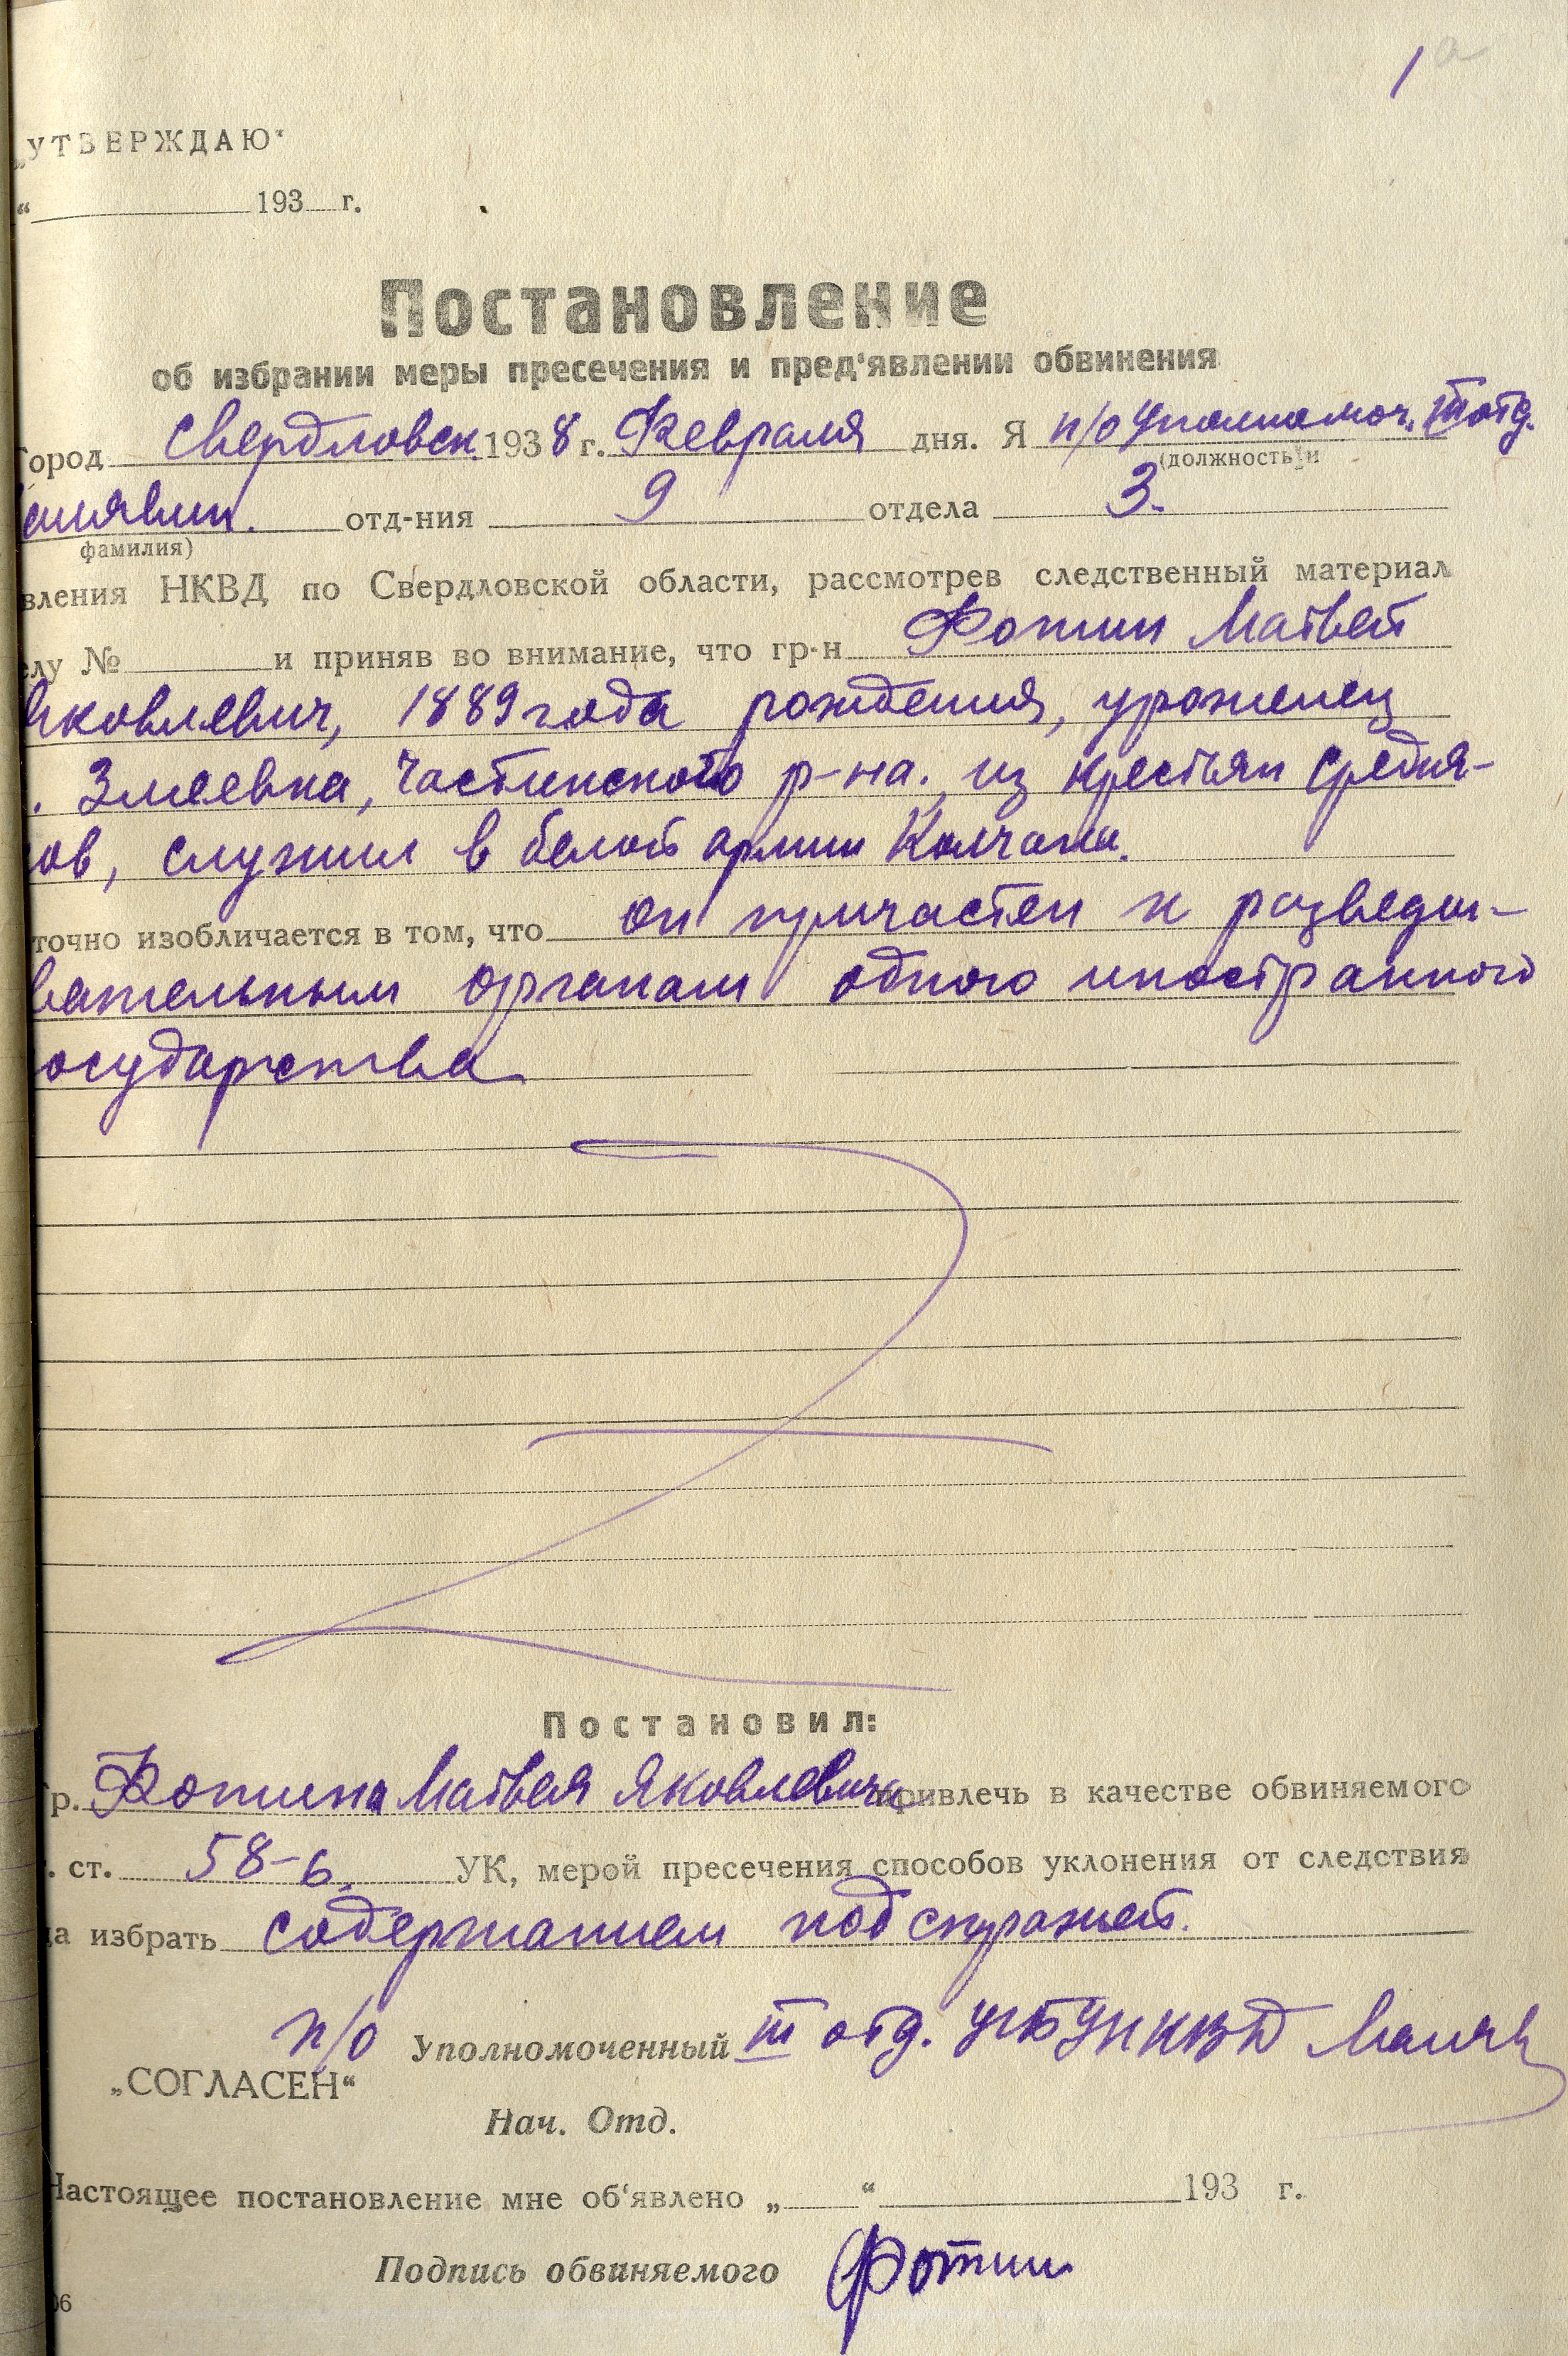 1 а
„УТВЕРЖДАЮ“
“ 193 г.
Постановление
об избрании меры пресечения и пред‘явлении обвинения
Город Свердловск 1938 г. Февраля дня. Я п/о Уполномоч. III отд.
(должность и
отд-ния 9 отдела 3.
фамилия)
вления НКВД по Свердловской области, рассмотрев следственный материал
елу № и приняв во внимание, что гр-н Фотин Матвей
Яковлевич, 1889 года рождения, уроженец
. Змеевка, Частинского р-на., из крестьян средня-
ков, служил в белой армии Колчака.
точно изобличается в том, что он причастен к разведы-
вательным органам одного иностранного
осударства
Постановил:
Гр. Фотина Матвея Яковлевича привлечь в качестве обвиняемого
. ст. 58-6. УК, мерой пресечения способов уклонения от следствия
да избрать содержанием под стражей.
п/о Уполномоченный III отд. УГБ УНКВД
„СОГЛАСЕН“
Нач. Отд.
Настоящее постановление мне об‘явлено „ “ 193 г.
Подпись обвиняемого Фотин
06